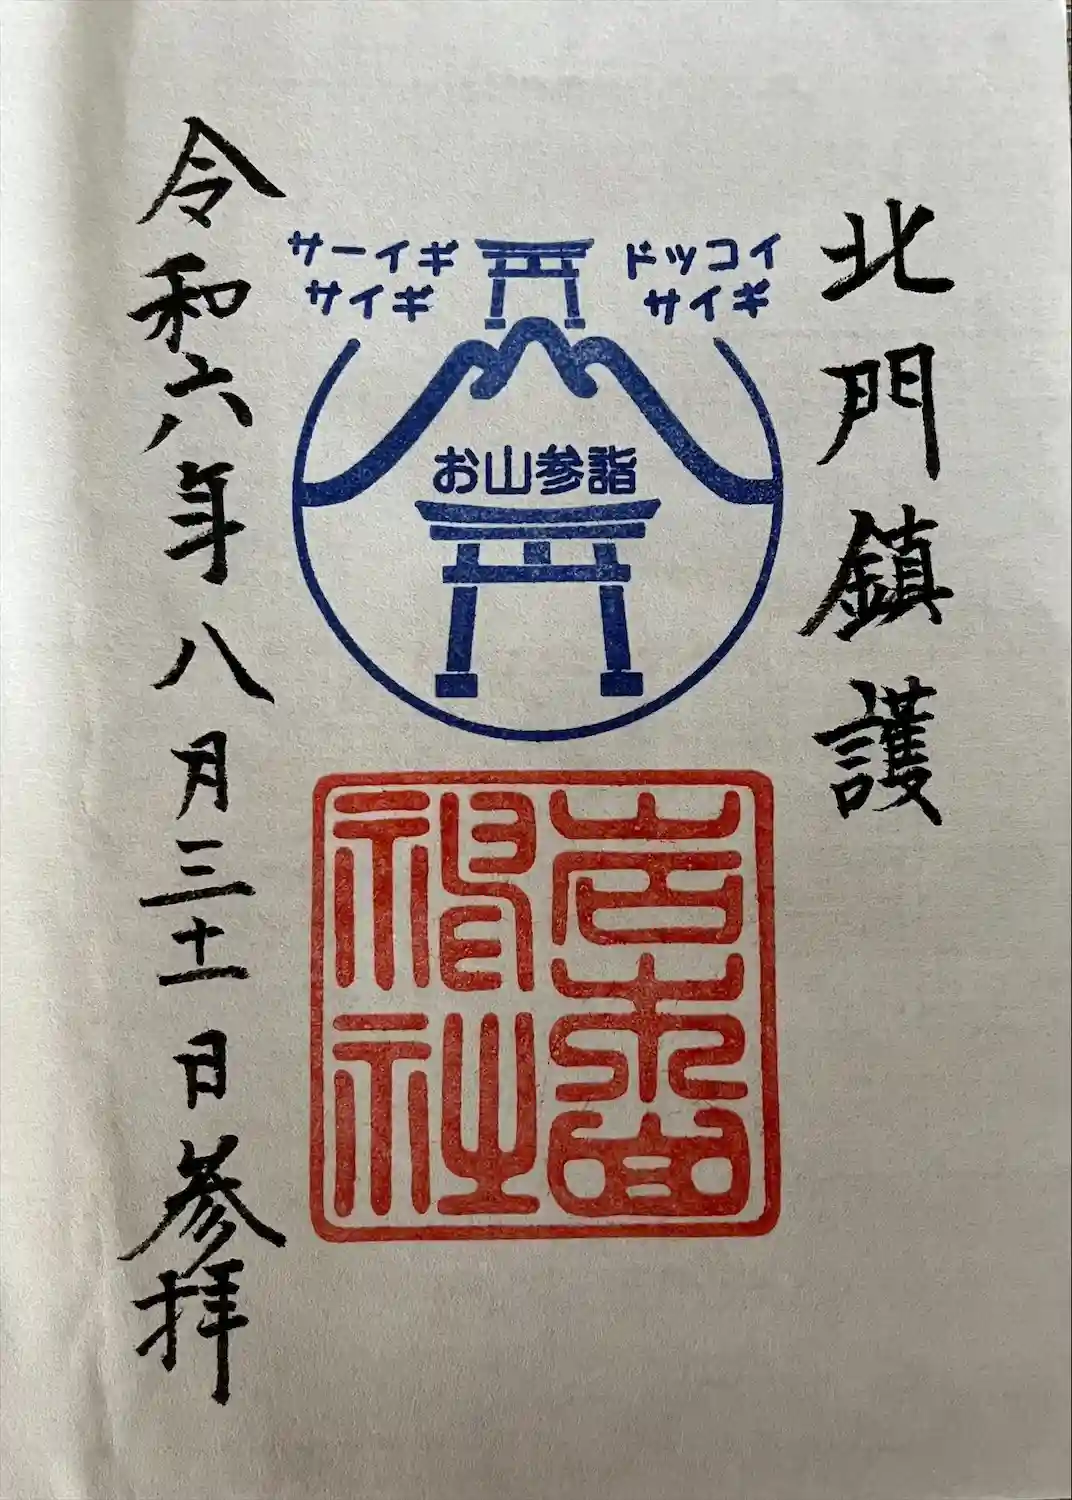 北門鎮護
サーイギ
サイギ
ドッコイ
サイギ
お山参詣
岩木山
神社
令和六年八月三十一日参拝